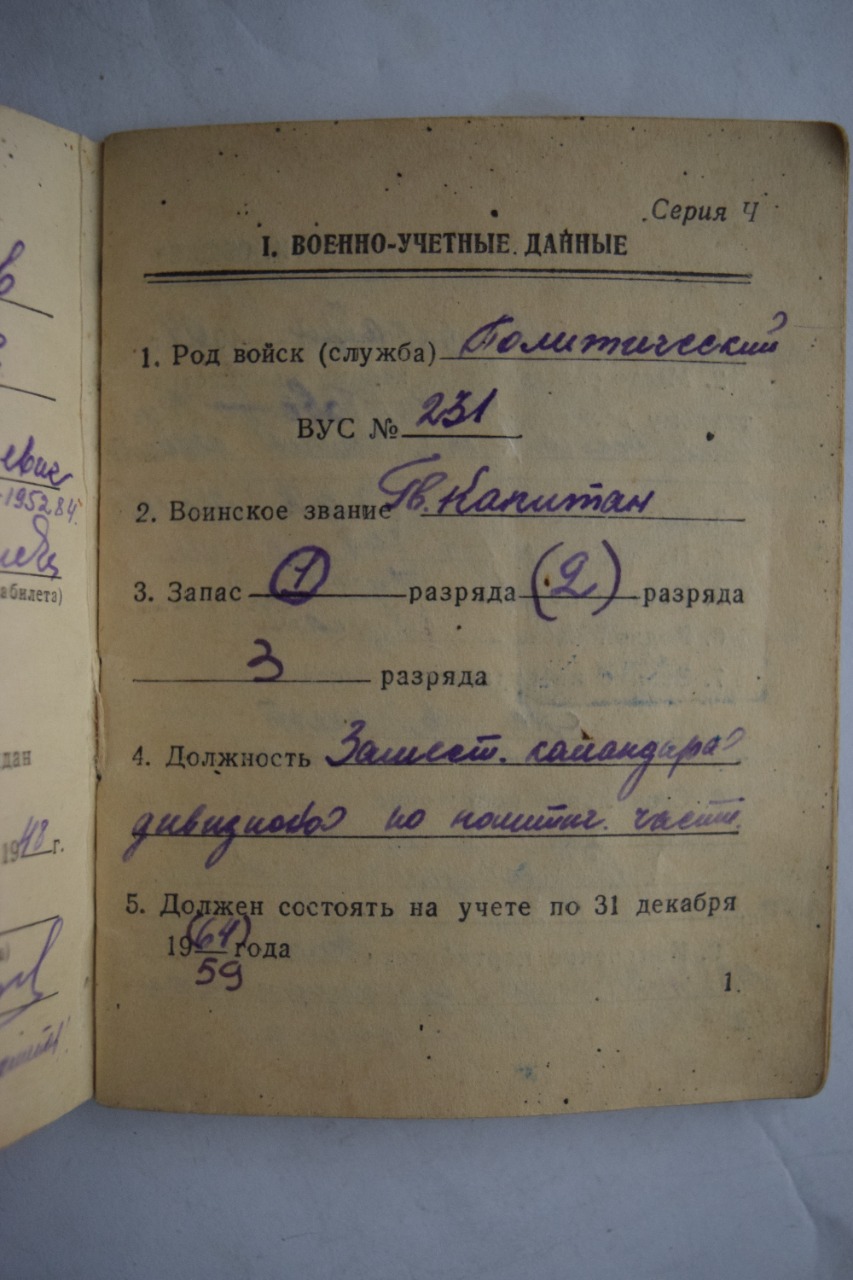 Серия Ч
I. ВОЕННО-УЧЕТНЫЕ ДАННЫЕ
1. Род войск (служба) Политический
ВУС № 231
2. Воинское звание Гв. Капитан
3. Запас 1 разряда (2) разряда
3 разряда
4. Должность Замест. командира
дивизиона по политич. части
5. Должен состоять на учете по 31 декабря
19(64) года
59
1.
евич
1952 84.
абилета)
дан
1948 г.